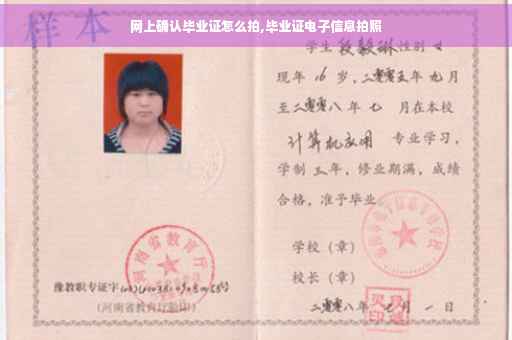 网上确认毕业证怎么拍,毕业证电子信息拍照
样本
学生段毅琳性别女
现年16岁，二零零五年九月
至二零零八年七 月在本校
计算机应用 专业学习，
学制三年，修业期满，成绩
合格，准予毕业
学校（章）
校长（章）
二零零八年七月一日
河南省教育厅
豫教职专证字
(河南省教育厅验印)